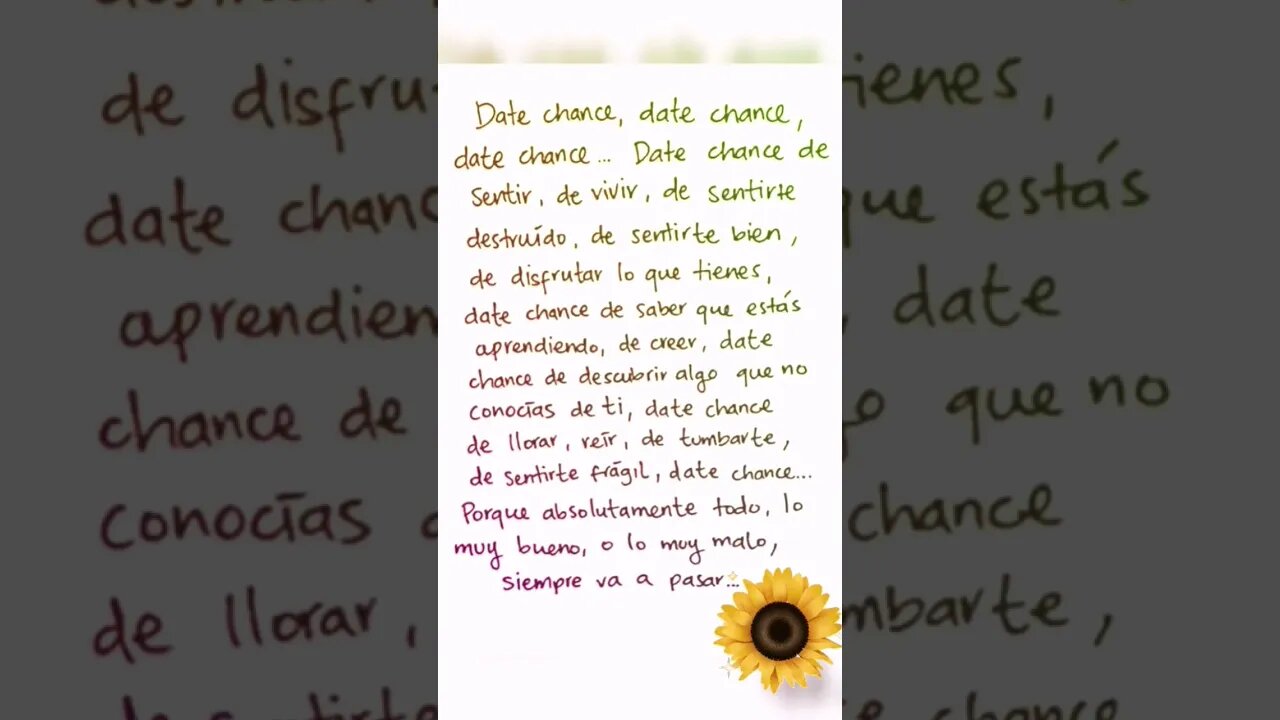 Date chance, date chance,
date chance... Date chance de
sentir, de vivir, de sentirte
destruído, de sentirte bien,
de disfrutar lo que tienes,
date chance de saber que estás
aprendiendo, de creer, date
chance de descubrir algo que no
conocías de ti, date chance
de llorar, reír, de tumbarte,
de sentirte frágil, date chance...
Porque absolutamente todo, lo
muy bueno, o lo muy malo,
siempre va a pasar...